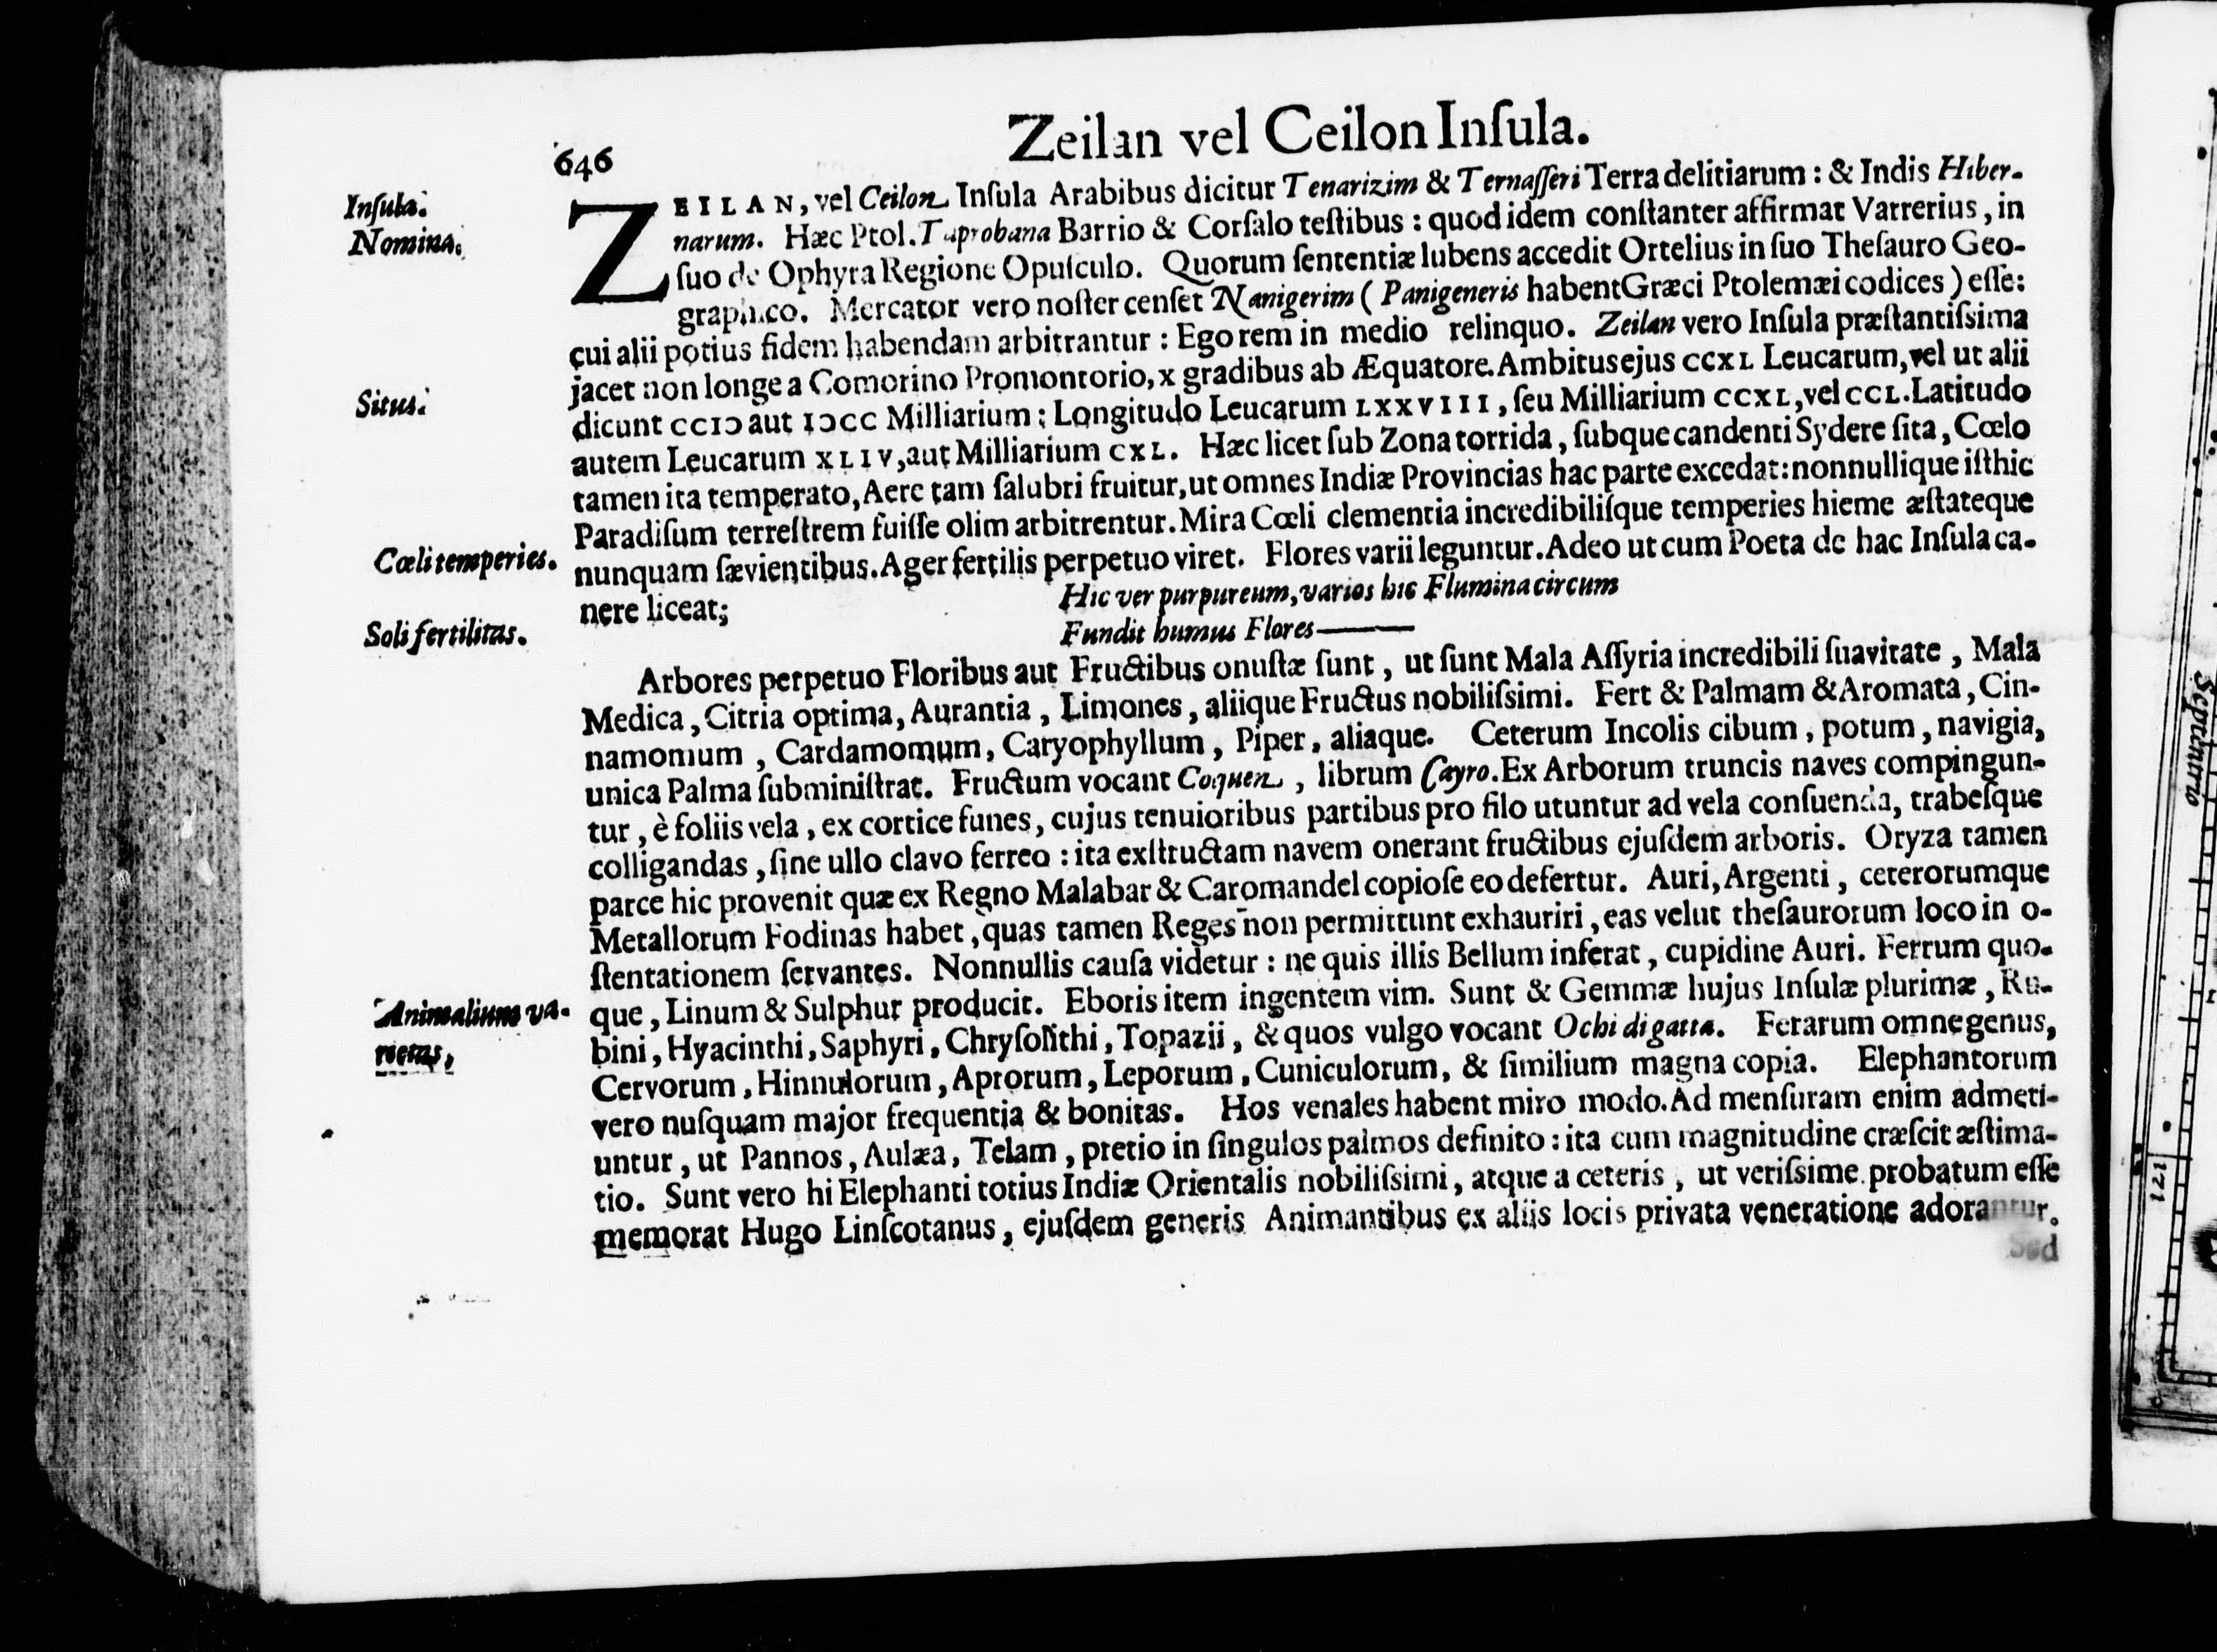 646
Zeilan vel Ceilon Inſula.
Inſula.
Nomina.
ZEILAN, vel Ceilon Inſula Arabibus dicitur Tenarizim & Ternaſſeri Terra delitiarum : & Indis Hiber-
narum. Hæc Ptol. Taprobana Barrio & Corſalo teſtibus : quod idem conſtanter affirmat Varrerius, in
ſuo de Ophyra Regione Opuſculo. Quorum ſententiæ lubens accedit Ortelius in ſuo Theſauro Geo-
graphico. Mercator vero noſter cenſet Nanigerim ( Panigeneris habent Græci Ptolemæi codices ) eſſe:
cui alii potius fidem habendam arbitrantur : Ego rem in medio relinquo. Zeilan vero Inſula præſtantiſsima
Situs.
jacet non longe a Comorino Promontorio, x gradibus ab Æquatore. Ambitus ejus CCXL Leucarum, vel ut alii
dicunt CCIↃ aut IↃCC Milliarium : Longitudo Leucarum LXXVIII, ſeu Milliarium CCXL, vel CCL. Latitudo
autem Leucarum XLIV, aut Milliarium CXL. Hæc licet ſub Zona torrida, ſubque candenti Sydere ſita, Cœlo
tamen ita temperato, Aere tam ſalubri fruitur, ut omnes Indiæ Provincias hac parte excedat: nonnullique iſthic
Paradiſum terreſtrem fuiſſe olim arbitrentur. Mira Cœli clementia incredibiliſque temperies hieme æſtateque
Cœli temperies.
nunquam ſævientibus. Ager fertilis perpetuo viret. Flores varii leguntur. Adeo ut cum Poeta de hac Inſula ca-
nere liceat;
Hic ver purpureum, varios hic Flumina circum
Soli fertilitas.
Fundit humus Flores———
Arbores perpetuo Floribus aut Fructibus onuſtæ ſunt, ut ſunt Mala Aſſyria incredibili ſuavitate, Mala
Medica, Citria optima, Aurantia, Limones, aliique Fructus nobiliſsimi. Fert & Palmam & Aromata, Cin-
namomum, Cardamomum, Caryophyllum, Piper, aliaque. Ceterum Incolis cibum, potum, navigia,
unica Palma ſubminiſtrat. Fructum vocant Coquen, librum Cayro. Ex Arborum truncis naves compingun-
tur, è foliis vela, ex cortice funes, cujus tenuioribus partibus pro filo utuntur ad vela conſuenda, trabeſque
colligandas, ſine ullo clavo ferreo : ita exſtructam navem onerant fructibus ejuſdem arboris. Oryza tamen
parce hic provenit quæ ex Regno Malabar & Caromandel copioſe eo defertur. Auri, Argenti, ceterorumque
Metallorum Fodinas habet, quas tamen Reges non permittunt exhauriri, eas velut theſaurorum loco in o-
ſtentationem ſervantes. Nonnullis cauſa videtur : ne quis illis Bellum inferat, cupidine Auri. Ferrum quo-
Animalium va-
rietas,
que, Linum & Sulphur producit. Eboris item ingentem vim. Sunt & Gemmæ hujus Inſulæ plurimæ, Ru-
bini, Hyacinthi, Saphyri, Chryſolithi, Topazii, & quos vulgo vocant Ochi di gatta. Ferarum omne genus,
Cervorum, Hinnulorum, Aprorum, Leporum, Cuniculorum, & ſimilium magna copia. Elephantorum
vero nuſquam major frequentia & bonitas. Hos venales habent miro modo. Ad menſuram enim admeti-
untur, ut Pannos, Aulæa, Telam, pretio in ſingulos palmos definito : ita cum magnitudine cræſcit æſtima-
tio. Sunt vero hi Elephanti totius Indiæ Orientalis nobiliſsimi, atque a ceteris, ut veriſsime probatum eſſe
memorat Hugo Linſcotanus, ejuſdem generis Animantibus ex aliis locis privata veneratione adorantur.
Sed
Septentrio
121